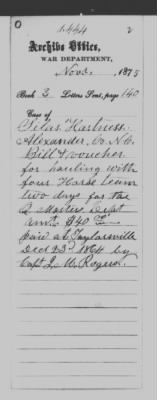 1,444 2
Archive Office,
WAR DEPARTMENT,
Nov 2. 1875
Book 3 Letters Sent, page 140
Case of
Silas Hartness.
Alexander, Co. N.C.
Bill & voucher
for hauling with
four Horse team
two days for the
Q Masters Dept
amt. $40
paid at Taylorsville
Decd 23d 1864 by
Capt J. W. Rogers.